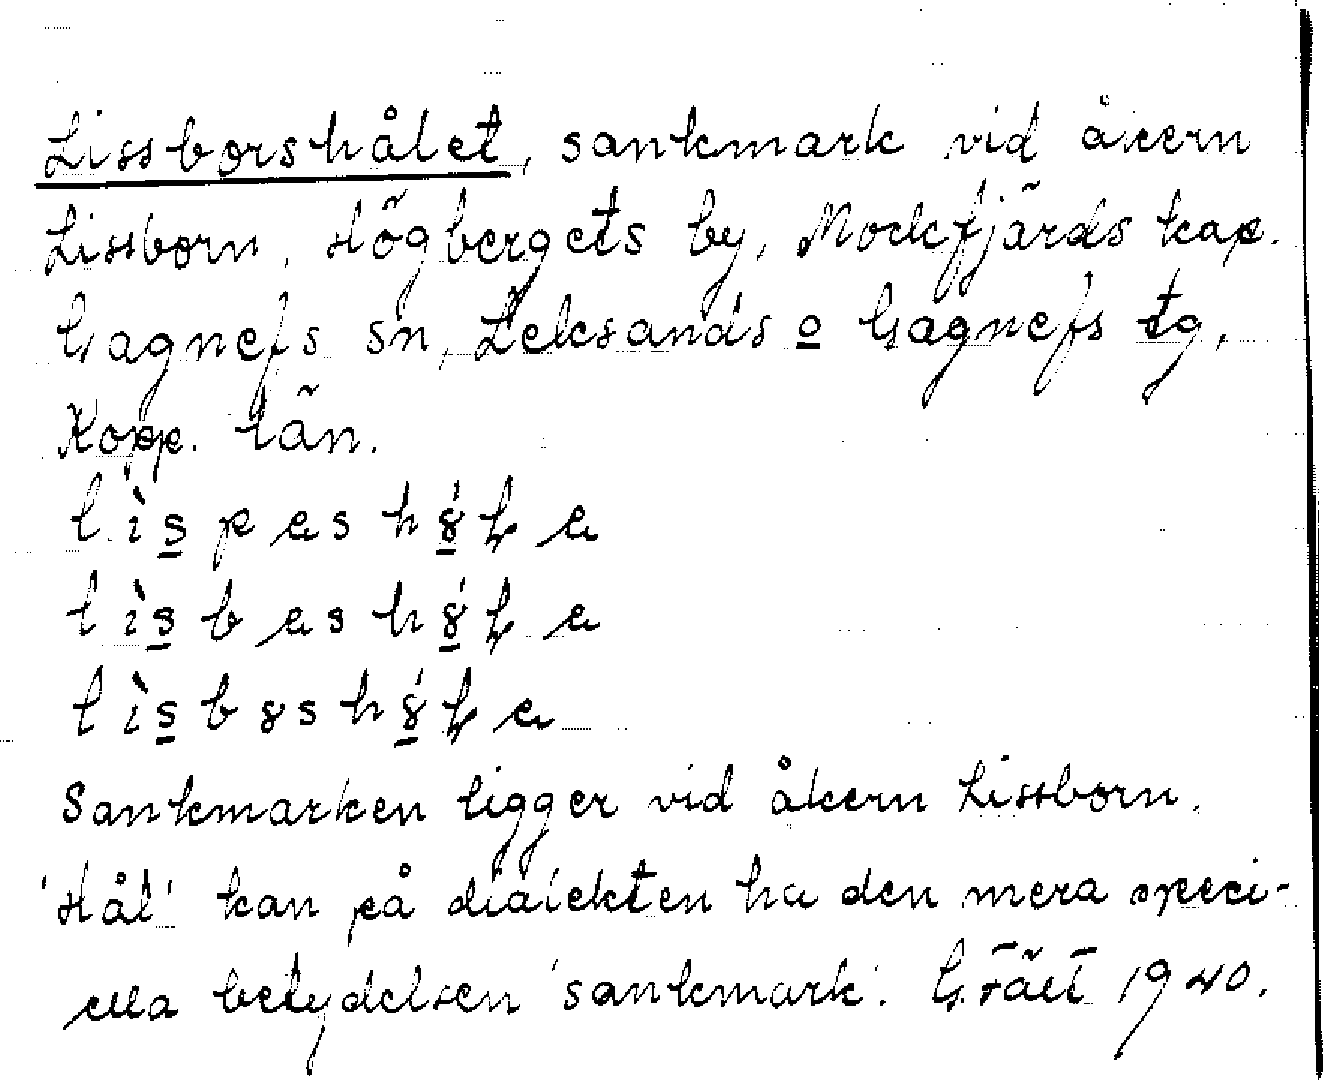 Lissborshålet, sankmark vid åkern
Lissborn, Högbergets by, Mockfjärds kap.
Gagnefs sn, Leksands o Gagnefs tg,
Kopp. län.
Sankmarken ligger vid åkern Lissborn.
'Hål' kan på dialekten ha den mera speci-
ella betydelsen 'sankmark'. G. 1940.